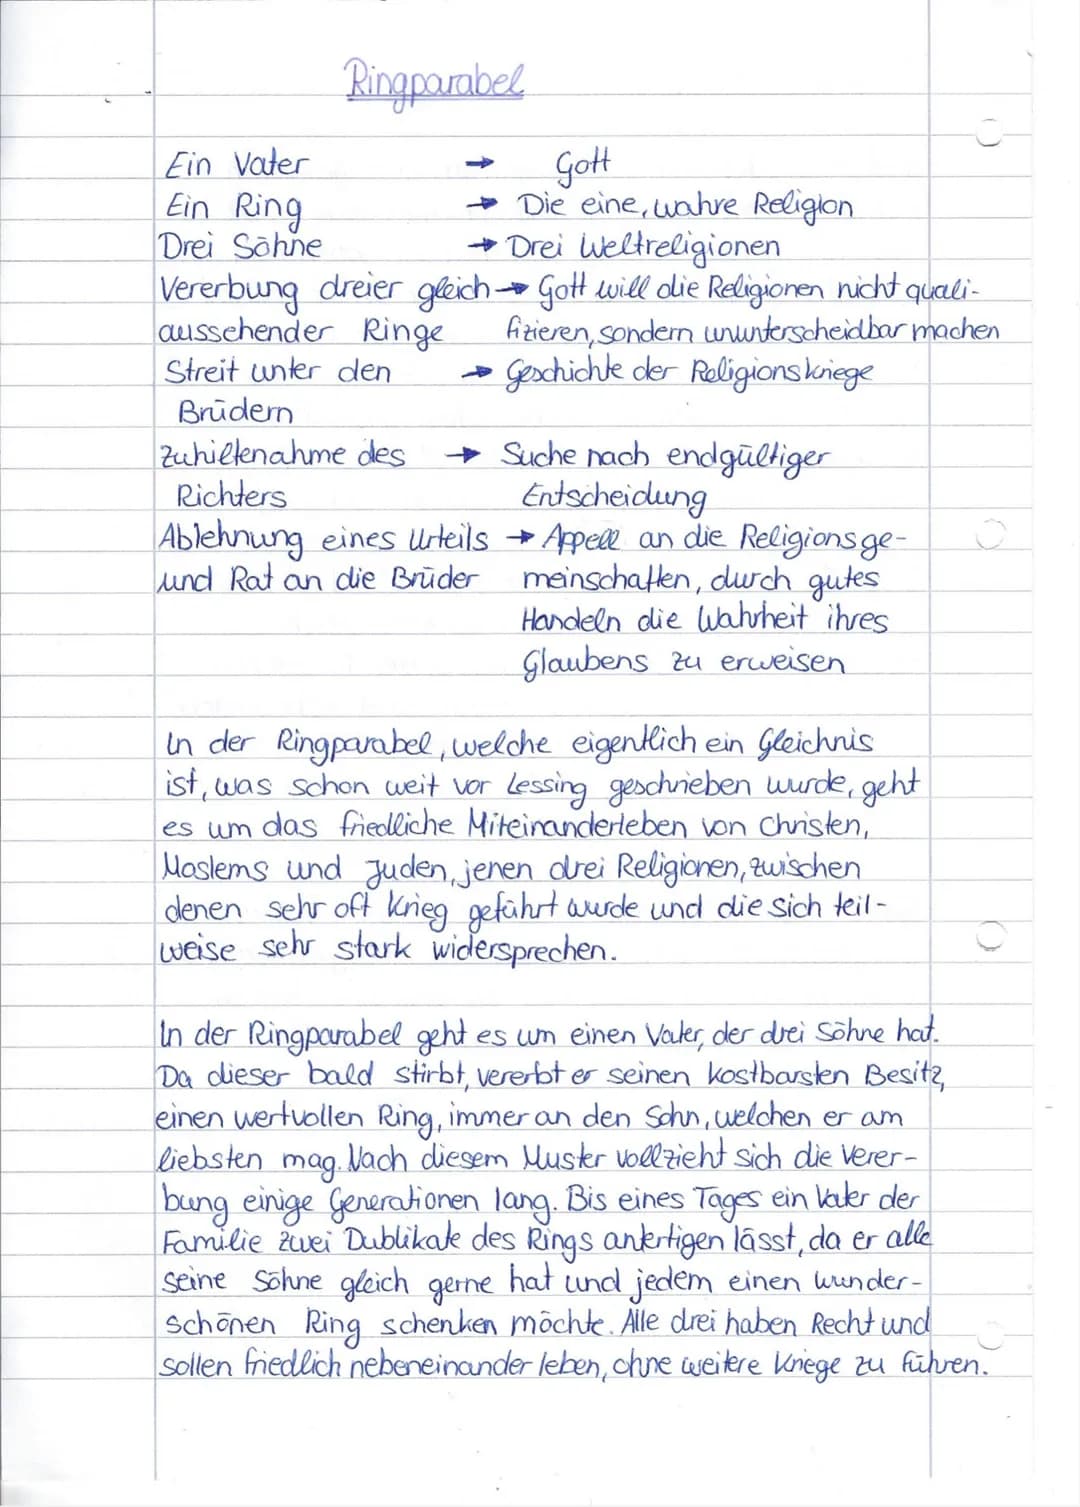 Ringparabel
Ein Vater → Gott
Ein Ring → Die eine, wahre Religion
Drei Söhne → Drei Weltreligionen
Vererbung dreier gleich → Gott will die Religionen nicht quali-
aussehender Ringe fizieren, sondern ununterscheidbar machen
Streit unter den → Geschichte der Religionskriege
Brüdern
Zuhilfenahme des → Suche nach endgültiger
Richters Entscheidung
Ablehnung eines Urteils → Appell an die Religionsge-
und Rat an die Brüder meinschaften, durch gutes
Handeln die Wahrheit ihres
Glaubens zu erweisen
In der Ringparabel, welche eigentlich ein Gleichnis
ist, was schon weit vor Lessing geschrieben wurde, geht
es um das friedliche Miteinanderleben von Christen,
Moslems und Juden, jenen drei Religionen, zwischen
denen sehr oft Krieg geführt wurde und die sich teil-
weise sehr stark widersprechen.
In der Ringparabel geht es um einen Vater, der drei Söhne hat.
Da dieser bald stirbt, vererbt er seinen kostbarsten Besitz,
einen wertvollen Ring, immer an den Sohn, welchen er am
liebsten mag. Nach diesem Muster vollzieht sich die Verer-
bung einige Generationen lang. Bis eines Tages ein Vater der
Familie zwei Dublikate des Rings anfertigen lässt, da er alle
seine Söhne gleich gerne hat und jedem einen wunder-
schönen Ring schenken möchte. Alle drei haben Recht und
sollen friedlich nebeneinander leben, ohne weitere Kriege zu führen.